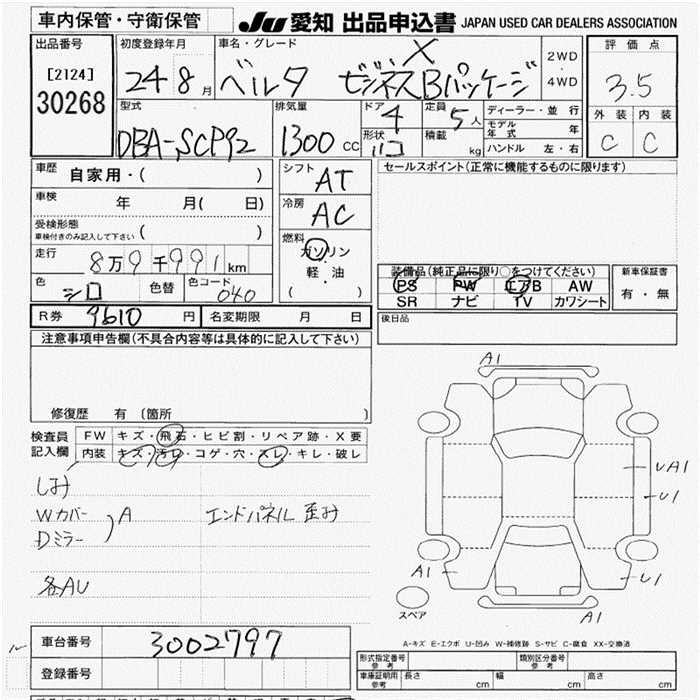 車内保管・守衛保管
JU 愛知 出品申込書 JAPAN USED CAR DEALERS ASSOCIATION
出品番号
[2124]
30268
初度登録年月
24年8月
車名・グレード
ベルタ X ビジネスBパッケージ
2WD
・
4WD
評価点
3.5
外装 内装
C C
型式
DBA-SCP92
排気量
1300 cc
ドア 4
形状 ハコ
定員 5人
積載 kg
ディーラー・並行
モデル年式 年
ハンドル 左・右
車歴 自家用・( )
車検 年 月( 日)
受検形態
車検付きのみ記入して下さい ( )
走行 8万9千991km
色 シロ 色替 色コード 040
シフト AT
冷房 AC
燃料
ガソリン
・
軽油
・
( )
セールスポイント(正常に機能するものに限ります)
装備品(純正品に限り○をつけてください)
PS PW エアB AW
SR ナビ TV カワシート
新車保証書
有・無
R券 9610円 名変期限 月 日
後日品
注意事項申告欄(不具合内容等は具体的に記入して下さい)
修復歴 有 〔箇所 〕
検査員記入欄
FW キズ・飛石・ヒビ割・リペア跡・X要
内装 キズ・汚レ・コゲ・穴・スレ・キレ・破レ
しみ
Wカバー
Dミラー ) A
エンドパネル 歪み
各AU
A1
UA1
U1
A1
U1
A1
スペア
A-キズ E-エクボ U-凹み W-補修跡 S-サビ C-腐食 XX-交換済
車台番号 3002797
登録番号
形式指定番号
参考
類別区分番号
参考
車庫証明用
参考
長さ cm 幅 cm 高さ cm